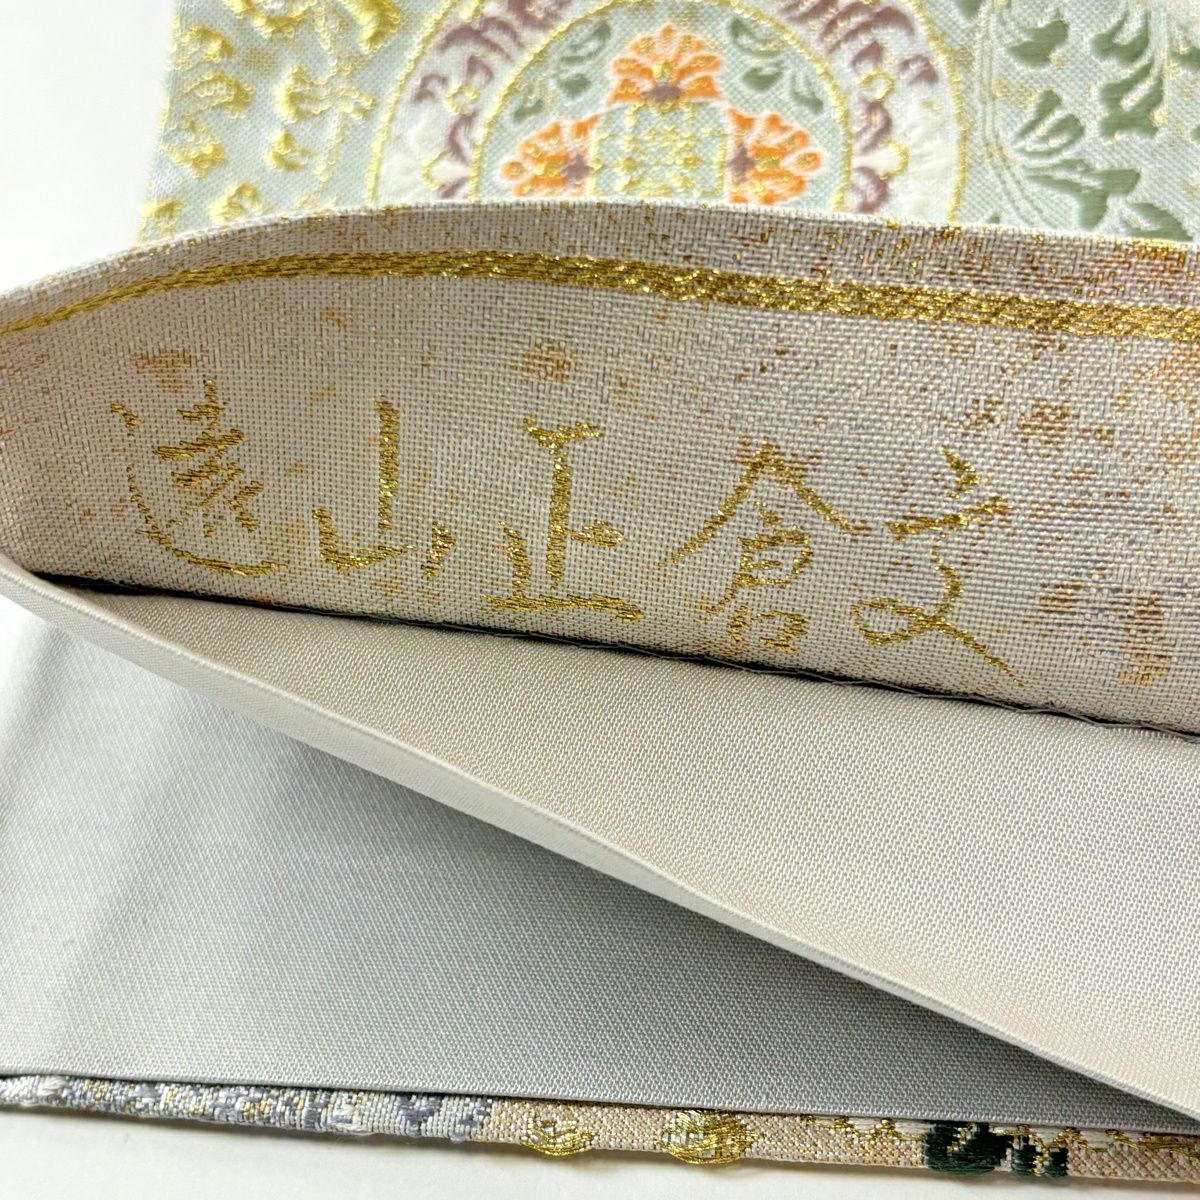 遠山正倉文